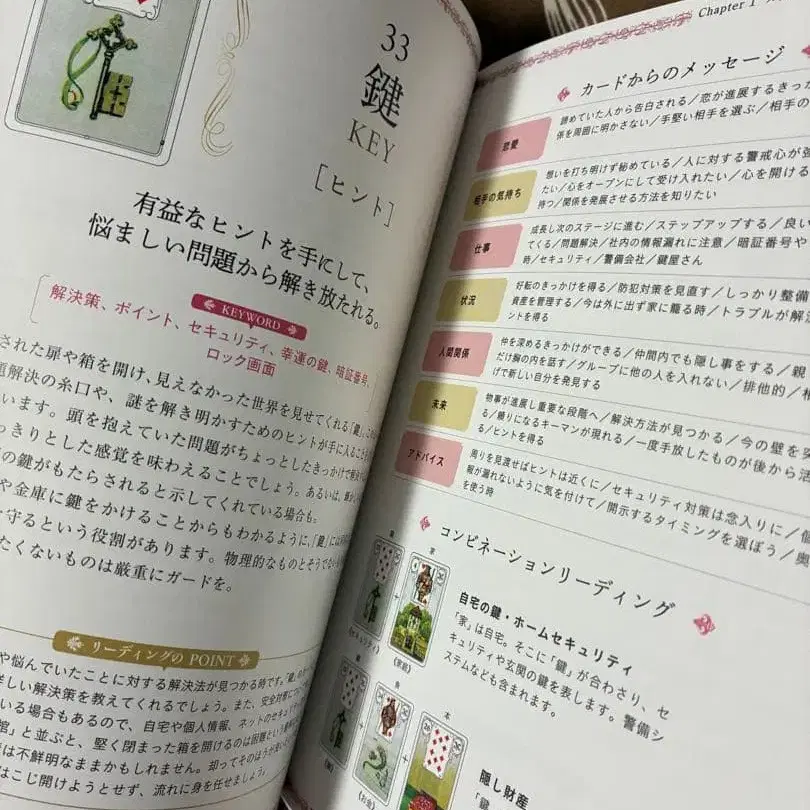 33
鍵
KEY
［ヒント］
有益なヒントを手にして、
悩ましい問題から解き放たれる。
KEYWORD
解決策、ポイント、セキュリティ、幸運の鍵、暗証番号、
ロック画面
された扉や箱を開け、見えなかった世界を見せてくれる「鍵」。
題解決の糸口や、謎を解き明かすためのヒントが手に入る
います。頭を抱えていた問題がちょっとしたきっかけで
っきりとした感覚を味わえることでしょう。あるいは、
の鍵がもたらされると示してくれている場合も。
や金庫に鍵をかけることからもわかるように、「鍵」には
守るという役割があります。物理的なものとそうでない
たくないものは厳重にガードを。
リーディングの POINT
や悩んでいたことに対する解決法が見つかる時です。「鍵」の
詳しい解決策を教えてくれるでしょう。また、安全対策に
いる場合もあるので、自宅や個人情報、ネットのセキュリティ
」と並ぶと、堅く閉まった箱を開けるのは困難という
は不鮮明なままかもしれません。却ってそのほうが
はこじ開けようとせず、流れに身を任せましょう。
Chapter 1
カードからのメッセージ
恋愛
諦めていた人から告白される／恋が進展するきっか
係を周囲に明かさない／手堅い相手を選ぶ／相手の
相手の気持ち
想いを打ち明けず秘めている／人に対する警戒心が強
たい／心をオープンにして受け入れたい／心を開ける
持つ／関係を発展させる方法を知りたい
仕事
成長し次のステージに進む／ステップアップする／良い
てくる／問題解決／社内の情報漏れに注意／暗証番号や
時／セキュリティ／警備会社／鍵屋さん
状況
好転のきっかけを得る／防犯対策を見直す／しっかり整備
資産を管理する／今は外に出ず家に籠る時／トラブルが解決
ントを得る
人間関係
仲を深めるきっかけができる／仲間内でも隠し事をする／親
だけ胸の内を話す／グループに他の人を入れない／排他的／相
げで新しい自分を発見する
未来
物事が進展し重要な段階へ／解決方法が見つかる／今の壁を突
る／頼りになるキーマンが現れる／一度手放したものが後から活
る／ヒントを得る
アドバイス
周りを見渡せばヒントは近くに／セキュリティ対策は念入りに／個
報が漏れないように気を付けて／開示するタイミングを選ぼう／奥
を使う時
コンビネーションリーディング
鍵
家
+
《セキュリティ》
《家庭》
自宅の鍵・ホームセキュリティ
「家」は自宅。そこに「鍵」が合わさり、セ
キュリティや玄関の鍵を表します。警備シ
ステムなども含まれます。
本
+
+
《お金》
隠し財産
「鍵